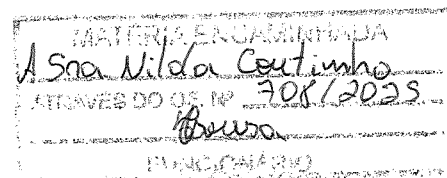 MATÉRIA ENCAMINHADA
A Sra Nilda Coutinho
ATRAVÉS DO OF. Nº 708/2025
Sousa
FUNCIONÁRIO